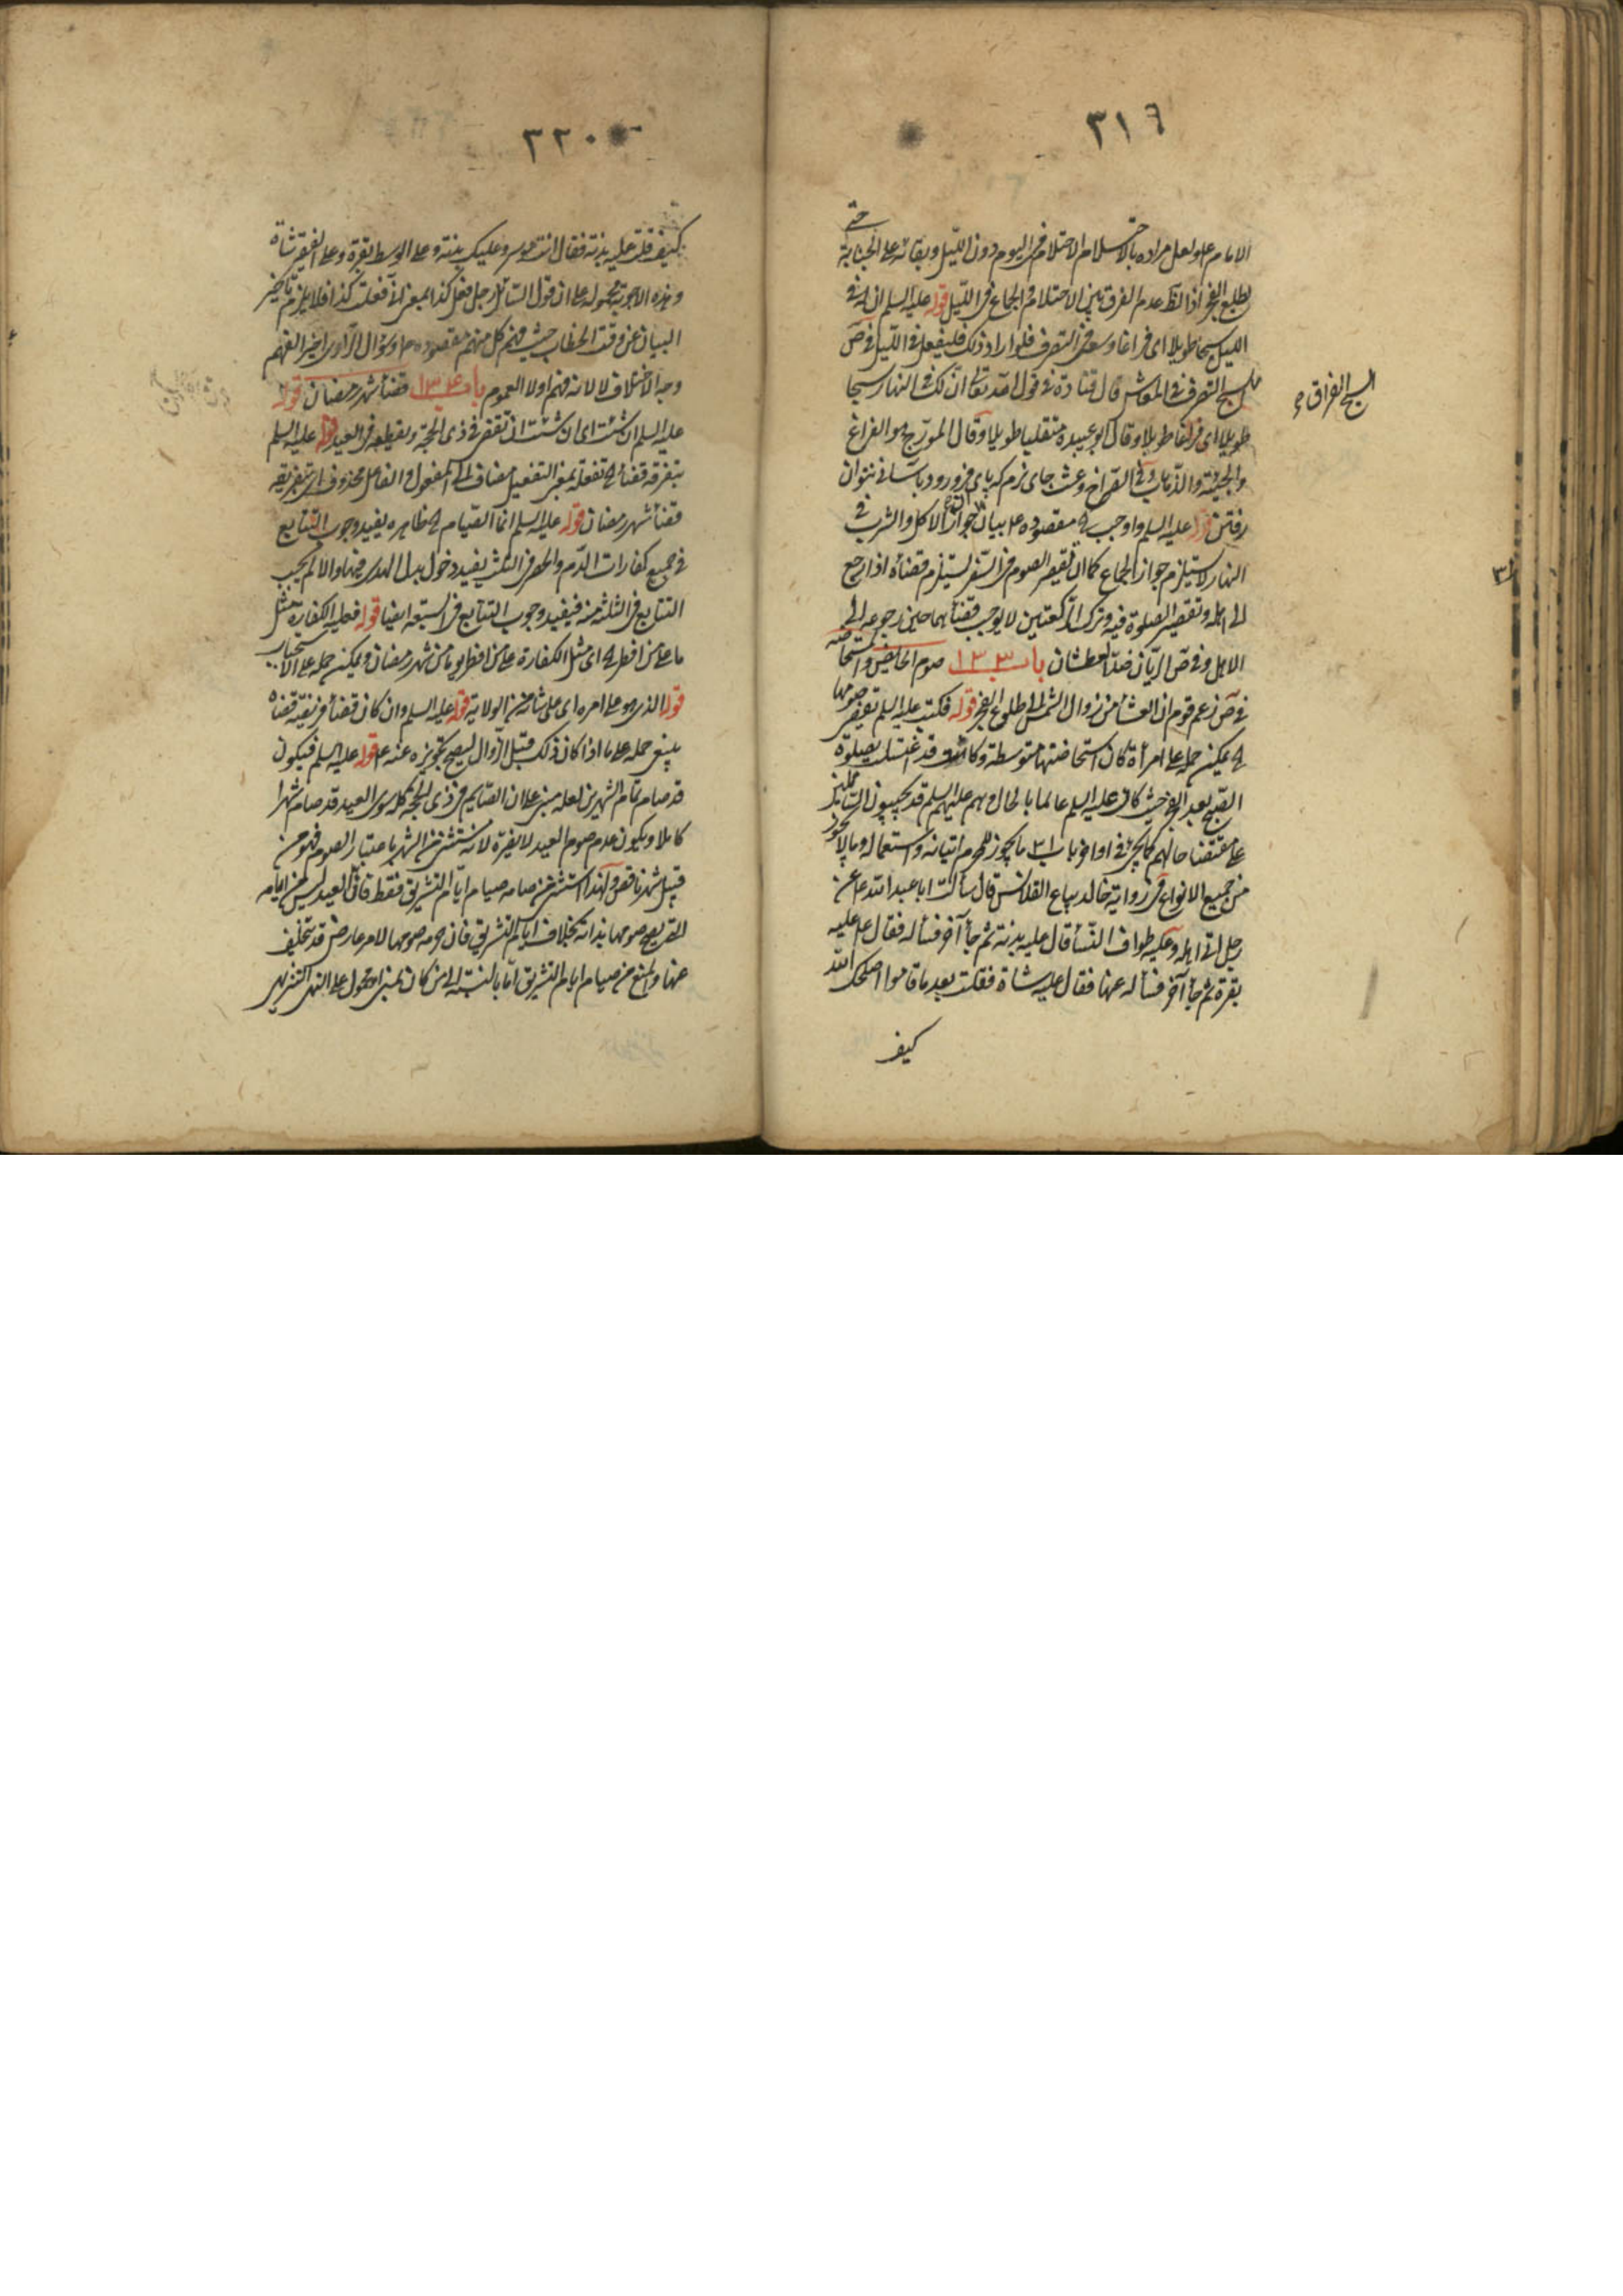 ٣١٦
الامام ع ولعل مراده بالاحتلام الاحتلام في اليوم دون الليل وبقائه على الجنابة حتى
يطلع الفجر اذ الظ عدم الفرق بين الاحتلام والجماع في الليل قوله عليه السلم ان له في
الليل سبحا طويلا اى فراغا وسعة في التصرف فلو اراد ذلك فليفعل في الليل في ص
السبح التصرف في المعاش قال قتادة في قول الله تعالى ان لك في النهار سبحا
طويلا اى فراغا طويلا وقال ابو عبيدة متقلبا طويلا وقال المورّج هو الفراغ
والجيئة والذهاب وفي الصراح وعث جاى نرم كه پاى فرو رود باسانى نتوان
رفتن قوله عليه السلم واوجب مقصوده ع بيان ان جواز الاكل والشرب في
النهار لا يستلزم جواز الجماع كما ان تقصير الصوم في السفر يستلزم قضاه اذا رجع
الى اهله وتقصير الصلوة فيه وترك الركعتين لا يوجب قضائهما حين رجوعه الى
الاهل وفي ص الريان ضد العطشان باب ١٣٣ صوم الحايض والمستحاضة
في ص زعم قوم ان العشا من زوال الشمس الى طلوع الفجر قوله فكتب عليه السلم تقضى صومها
يمكن حمله على امرأة كان استحاضتها متوسطة وكانت قد اغتسلت لصلوة
الصبح بعد الفجر حيث كان عليه السلم عالما بالحال وهم عليهم السلم قد يجيبون السائلين
على مقتضا حالهم كما يجئ في اواخر باب ما يجوز للمحرم اتيانه واستعماله وما لا يجوز
من جميع الانواع في رواية خالد بياع القلانس قال سألت ابا عبد الله ع عن
رجل اتى اهله وعليه طواف النسأ قال عليه بدنة ثم جأ آخر فسأله فقال ع عليه
بقرة ثم جأ آخر فسأله عنها فقال عليه شاة فقلت بعد ما قاموا اصلحك الله
كيف
٣٢٠
كيف قلت عليه بدنة فقال انت موسر وعليك بدنة وعلى الوسط بقرة وعلى الفقير شاة
وهذه الاجوبة محمولة على ان قول السائل رجل فعل كذا بمعنى انا فعلت كذا فلا يلزم تأخير
البيان عن وقت الخطاب حيث فهم كل منهم مقصوده ع وسؤال الراوى اخيرا لفهم
وجه الاختلاف لا لانه فهم اولا العموم باب ١٣٤ قضأ شهر رمضان قوله
عليه السلم ان شئت اى ان شئت ان تقضى في ذى الحجة وتقطعه في العيد قوله عليه السلم
بتفرقة قضأ تفعلة بمعنى التفعيل مضاف الى المفعول والفاعل محذوف اى بتفريقه
قضأ شهر رمضان قوله عليه السلم انما الصيام ظاهره يفيد وجوب التتابع
في جميع كفارات الدم والحصر في الثلث يفيد دخول بدل الهدى فيها والا لم يجب
التتابع في الثلثة منه فيفيد وجوب التتابع في السبعة ايضا قوله فعليه الكفارة مثل
ما على من افطر اى مثل الكفارة على من افطر يوما من شهر رمضان ويمكن حمله على الاستحباب
قوله الذى هو على امره اى على شأنه من الولاية قوله عليه السلم وان كان قضأ فريضة قضاه
ينبغي حمله على ما اذا كان ذلك قبل الزوال ليصح تجويزه عنه ع قوله عليه السلم فيكون
قد صام تمام الشهرين لعله مبنى على ان الصائم في ذى الحجة كله سوى العيد قد صام شهرا
كاملا ويكون عدم صوم العيد لا يضره لانه مستثنى من الشهر باعتبار الصوم فهو من
قبيل شهر ناقص ولهذا استثنى من صامه صيام ايام التشريق فقط فان العيد ليس من ايامه
التى يصح صومها بذاته بخلاف ايام التشريق فان حرمة صومها لامر عارض قد يتخلف
عنها والمنع من صيام ايام التشريق اما بالنسبة الى من كان بمنى او محمول على النهى التنزيهى